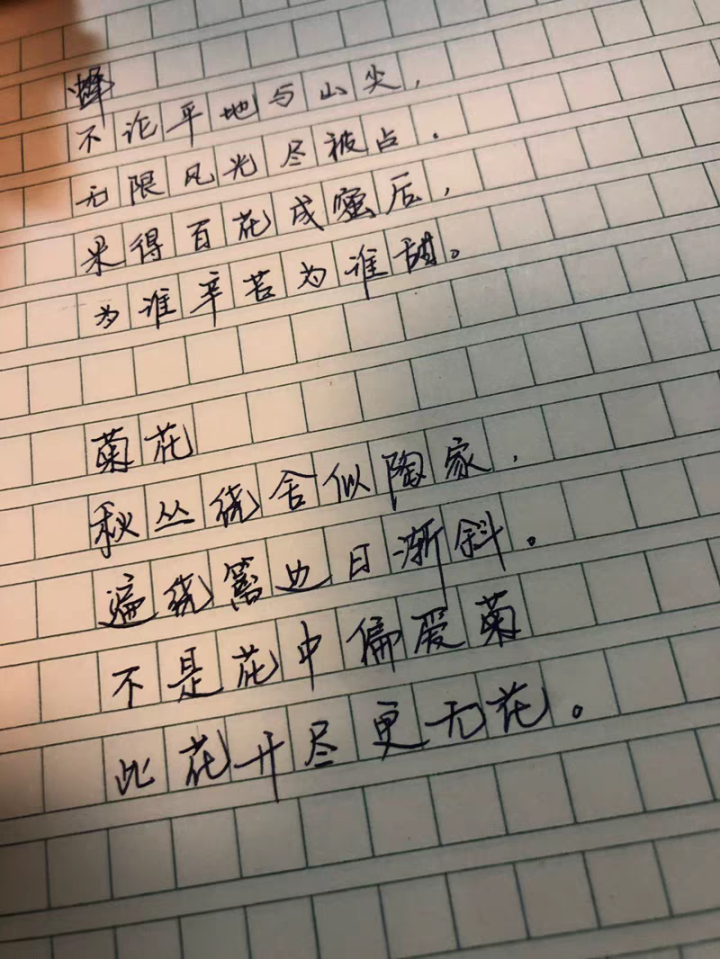 蜂
不论平地与山尖，
无限风光尽被占.
采得百花成蜜后，
为谁辛苦为谁甜。
菊花
秋丛绕舍似陶家，
遍绕篱边日渐斜。
不是花中偏爱菊
此花开尽更无花。